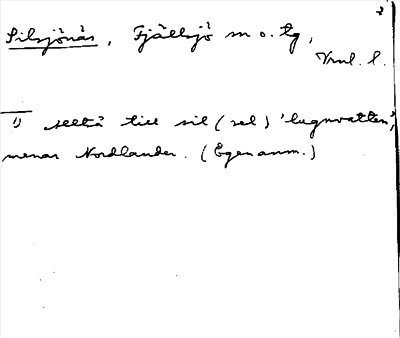 Silsjönäs, Fjällsjö sn o. tg,
Vnl. l.
1) till sil (sel) 'lugnvatten',
menar Nordlander. (Egen anm.)